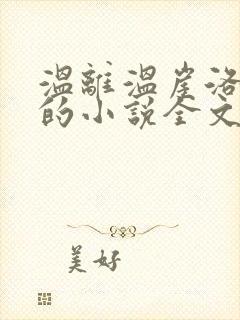 溫離溫崖洛
的小說全文
美好